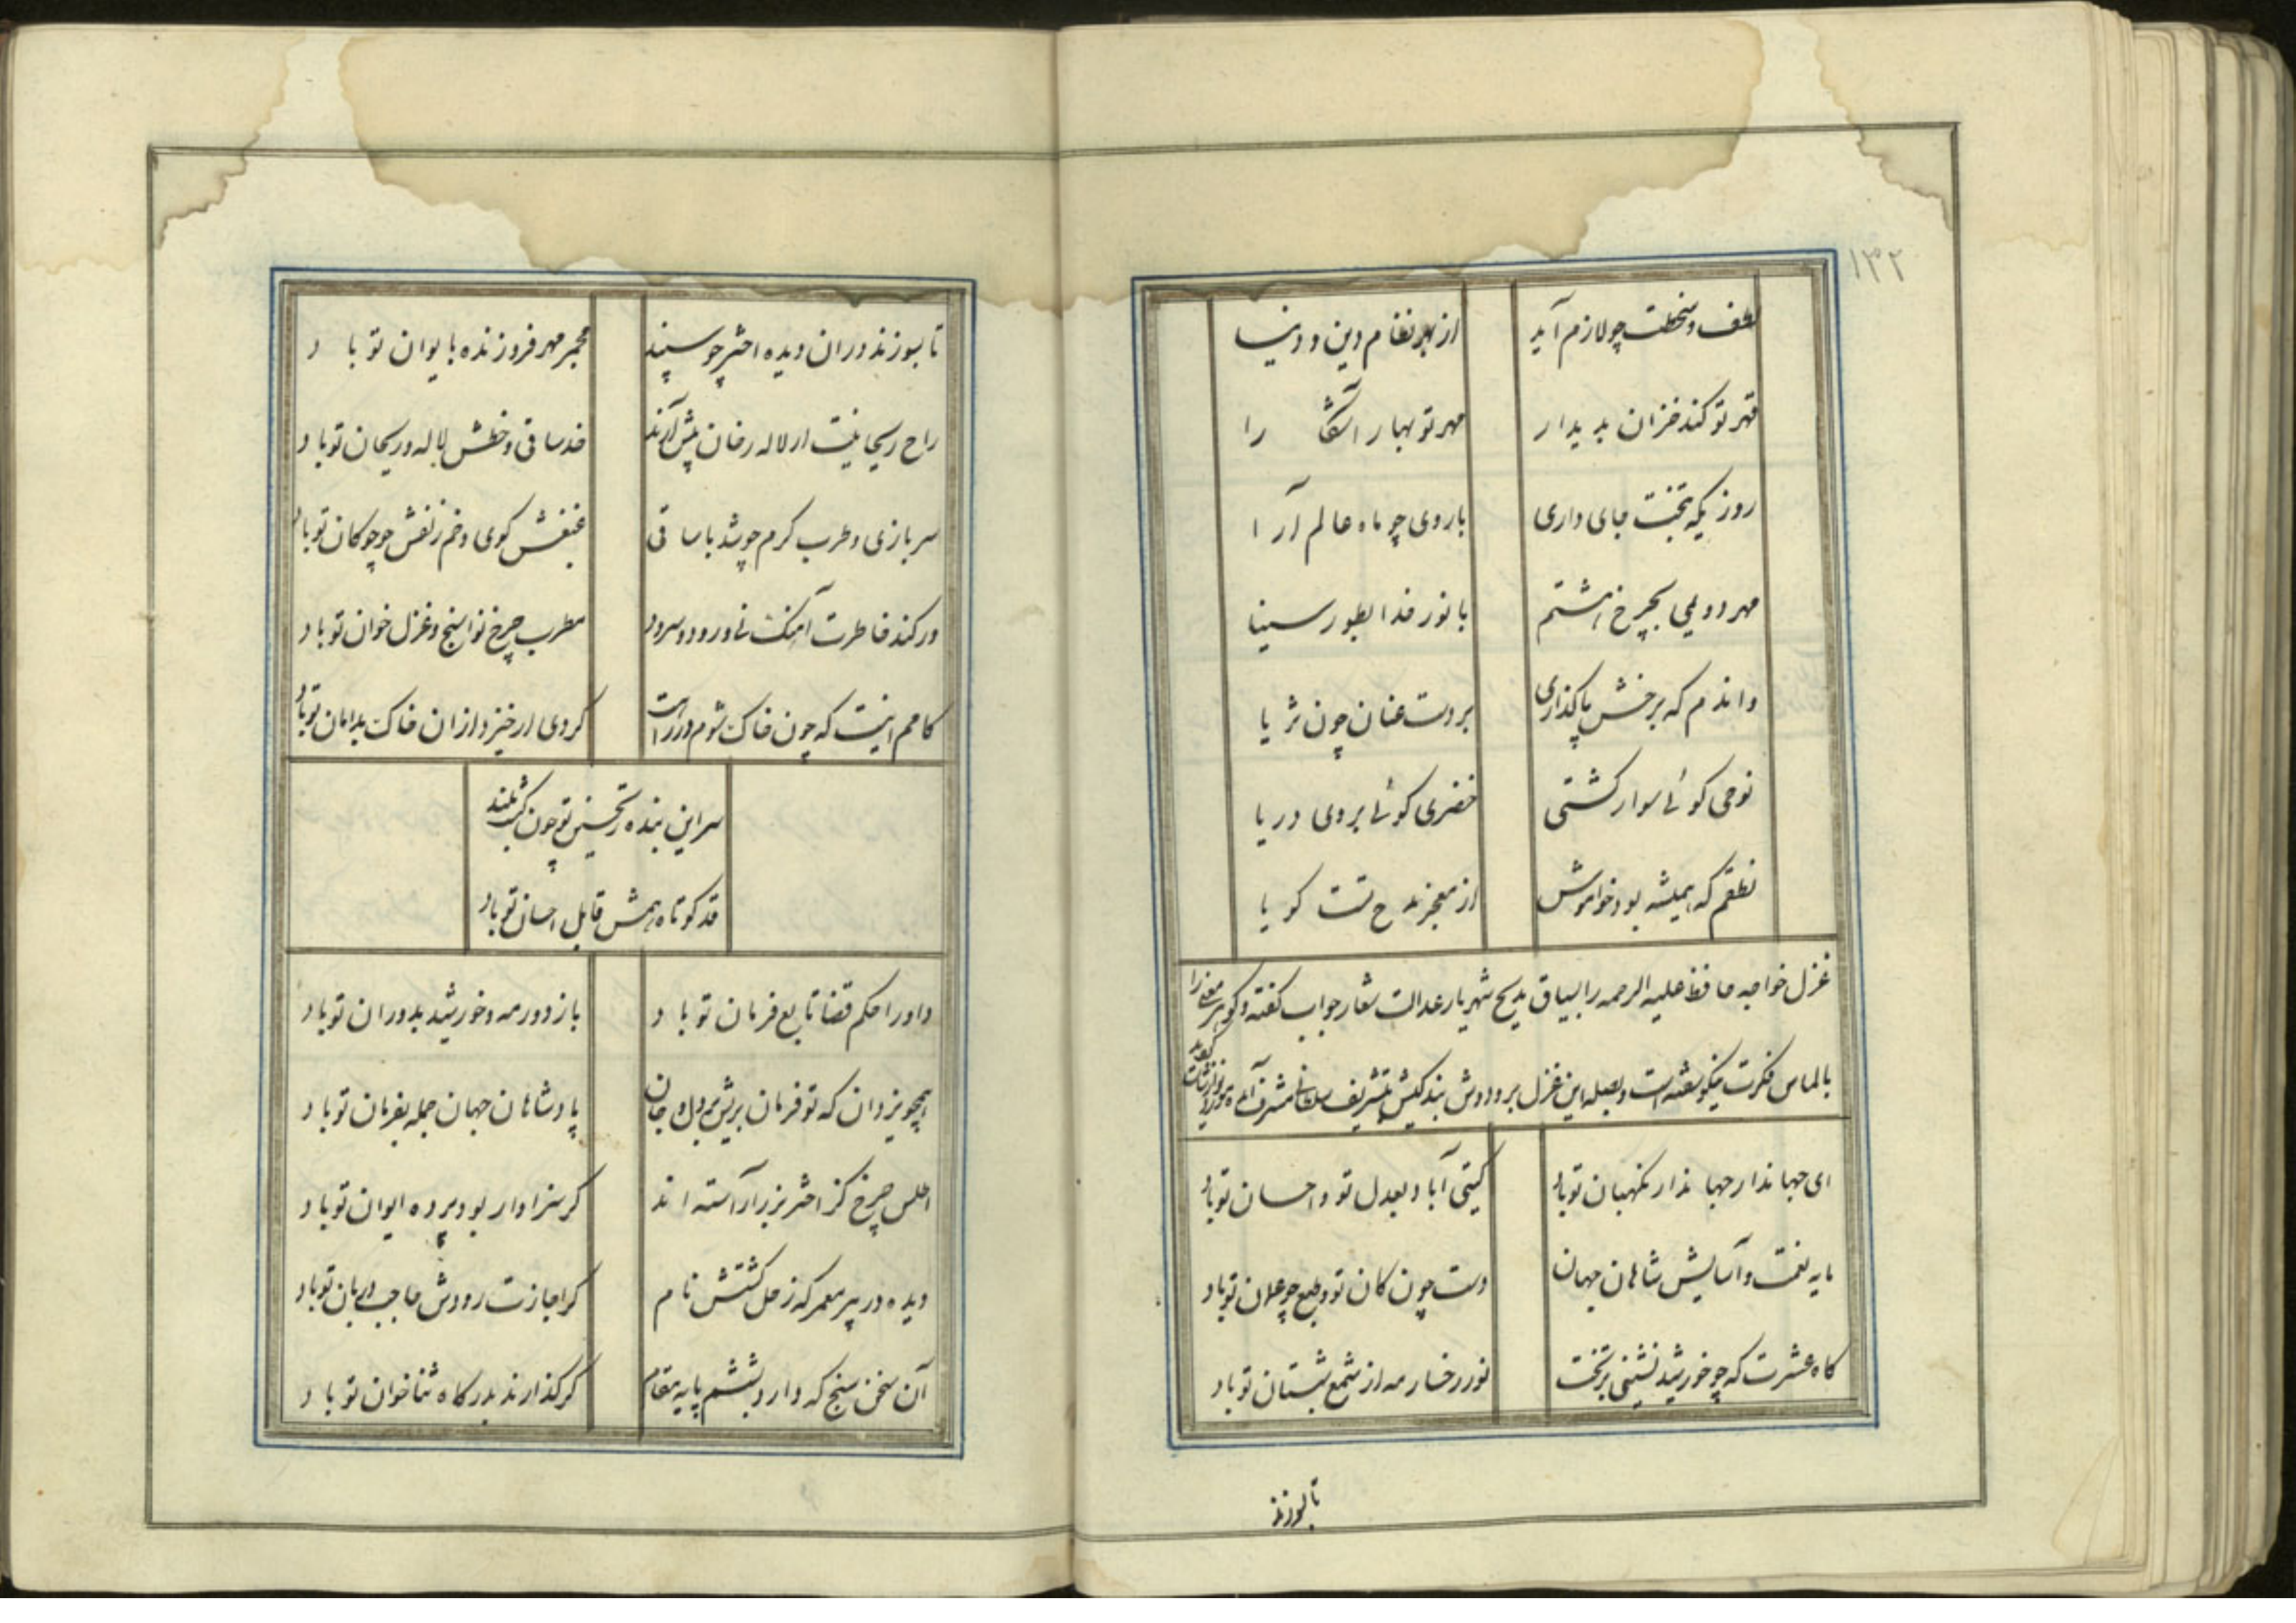 ۱۳۲
لطف و سخطت چو لازم آید از بهر نظام دین و دنیا
قهر تو کند خزان پدیدار مهر تو بهار آشکارا
روزیکه بتخت جای داری با روی چو ماه عالم آرا
مهر دویمی بچرخ هشتم یا نور خدا بطور سینا
واندم که برخش پا گذاری بر دست عنان چون ثریا
نوحی گوئی سوار کشتی خضری گوئی بروی دریا
نطقم که همیشه بود خواموش از معجز مدح تست گویا
غزل خواجه حافظ علیه الرحمه را بسیاق مدیح شهریار عدالت شعار جواب گفته و گوهر معنی را
بالماس فکرت نیکو سفته است و بصله این غزل بر و دوش بندگیش بتشریف سلطانی مشرف آمد
ای جهاندار جهاندار نگهبان تو باد گیتی آباد بعدل تو و احسان تو باد
مایه نعمت و آسایش شاهان جهان دست چون کان تو و طبع چو عمان تو باد
گاه عشرت که چو خورشید نشینی بر تخت نور رخسار مه از شمع شبستان تو باد
تا بسوزند
تا بسوزند در ان دیده اختر چو سپند مجمر مهر فروزنده بایوان تو باد
راح ریحانیت ار لاله رخان پیش آرند خد ساقی و خطش لاله و ریحان تو باد
سر بازی و طرب گرم چو شد با ساقی غبغبش گوی و خم زلفش چو چوگان تو باد
ور کند خاطرت آهنگ نی و رود و سرود مطرب چرخ نواسنج و غزل خوان تو باد
کامم اینست که چون خاک شوم در راهت گردی ار خیزد ازان خاک بدامان تو باد
سر این بنده ز تحسین تو چون گشت بلند
قد کوتاه همش قابل احسان تو باد
داورا حکم قضا تابع فرمان تو باد باز دور مه و خورشید بدوران تو باد
همچو یزدان که تو فرمان بریش از دل و جان پادشاهان جهان جمله بفرمان تو باد
اطلس چرخ کز اختر بزر آراسته اند گر سزاوار بود پرده ایوان تو باد
دیده ور پیر معمر که زحل گشتش نام گر اجازت رودش حاجب و دربان تو باد
آن سخن سنج که دارد بششم پایه مقام گر گذارند بدرگاه ثناخوان تو باد